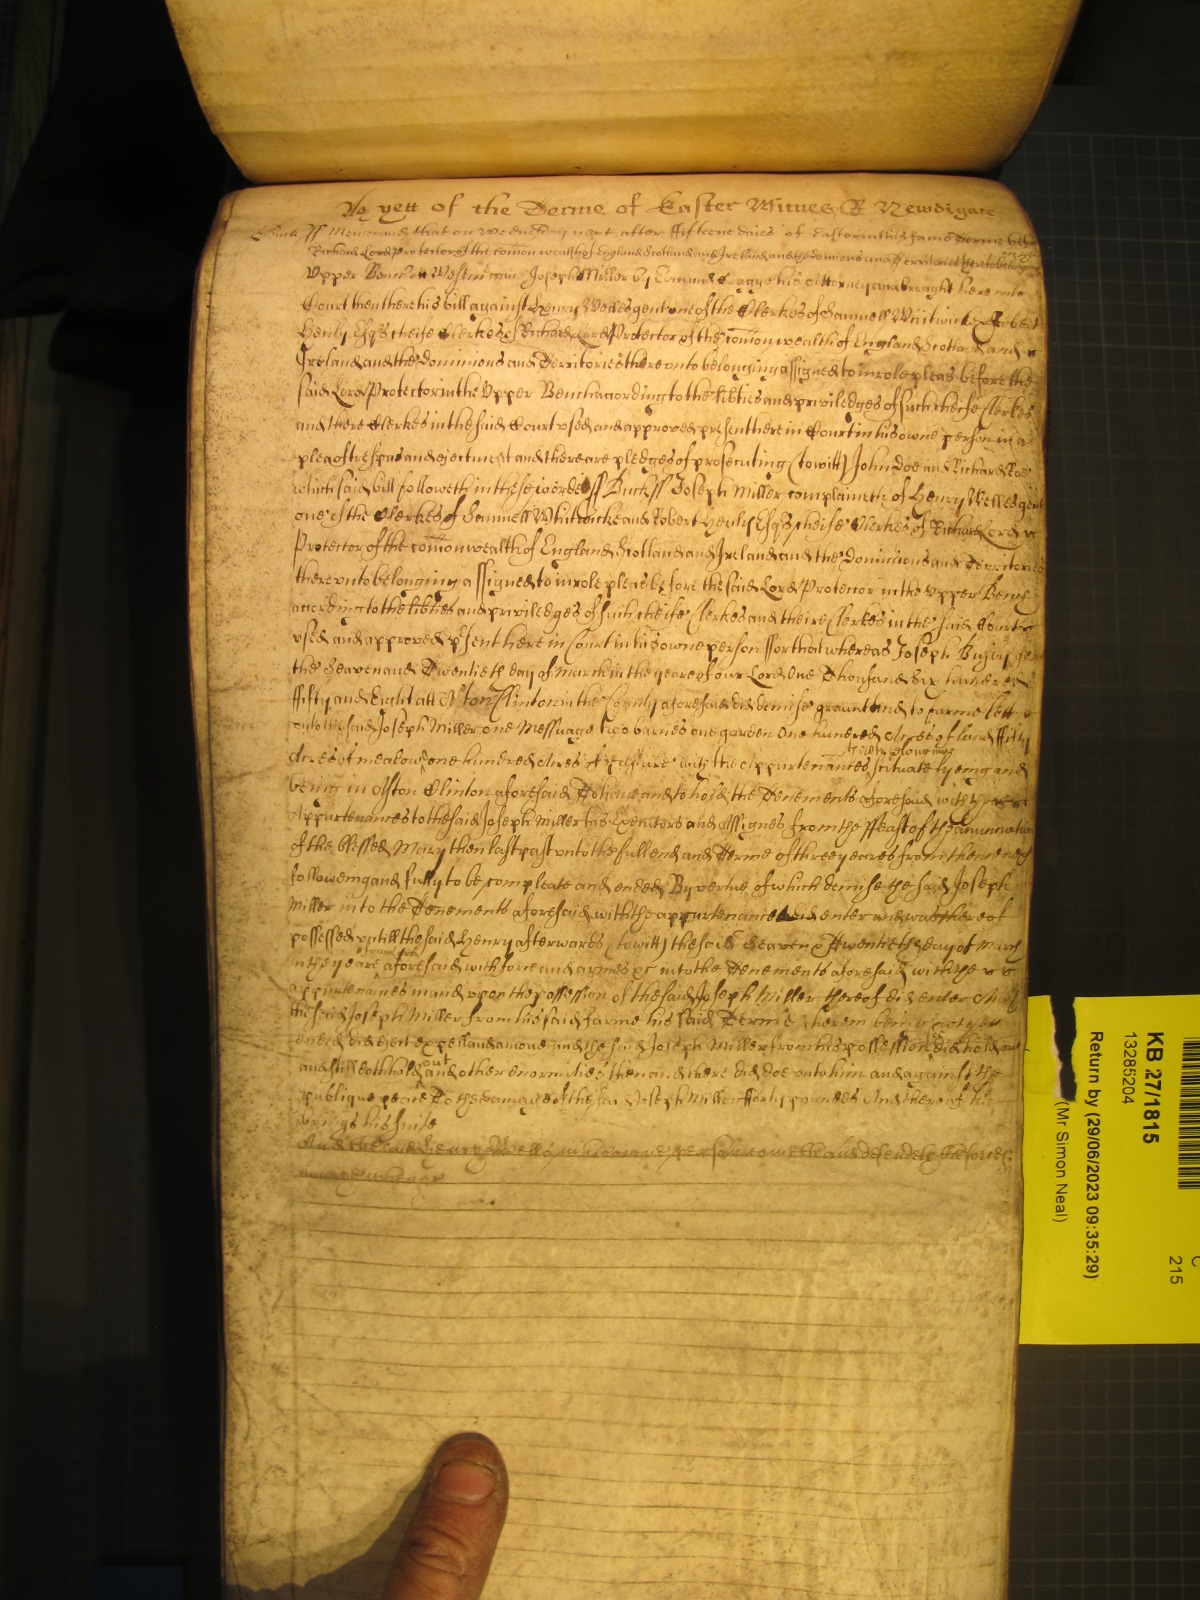 As yett of the Terme of Easter Witnes R Newdigate
Bucks ss Memorand that on Wednesday next after fifteene daies of Easter in this same Terme before
Richard Lord Protector of the comon wealth of England Scotland and Ireland and the dominions and Territories thereto belonging
Upper Bench att Westm came Joseph Miller by Edmund his Attorney and brought here into
Court then there his bill against Henry Welles gent one of the Clerkes of Samuell Whitwick & Robert
Henly Esqs cheife Clerkes of Richard Lord Protector of the comon wealth of England Scotland and
Ireland and the Dominions and Territories thereunto belonging assigned to inrole pleas before the
said Lord Protector in the Upper Bench acording to the libties and priviledges of such cheife Clerkes
and there Clerkes in the said Court used and approved present here in Court in his owne person in a
plea of trespas and ejectment and there are pledges of prosecuting (to witt) John Doe and Richard Roe
which said bill followeth in these wordes ss Bucks ss Joseph Miller complaineth of Henry Welles gent
one of the Clerkes of Samuell Whitwicke and Robert Henly Esqs cheife Clerkes of Richard Lord
Protector of the comon wealth of England Scotland and Ireland and the Dominions and Territories
thereunto belonging assigned to inrole pleas before the said Lord Protector in the Upper Bench
acording to the libties and priviledges of such cheife Clerkes and theire Clerkes in the said Court
used and approved psent here in Court in his owne person for that whereas Joseph Busby gen
the Seaven and Twentieth day of March in the yeare of our Lord One Thousand Six hundred
fifty and Eight att Aston Clinton in the County aforesaid did demise graunt and to farme lett
unto the said Joseph Miller one Messuage two barnes one garden One hundred Acres of land fifty
Acres of meadow one hundred Acres of pasture with the Appurtenances scituate lyeing and
being in Aston Clinton aforesaid To have and to hold the Tenements aforesaid with the
Appurtenances to the said Joseph Miller his Executors and Assignes from the ffeast of the annunciation
of the blessed Mary then last past unto the full end and Terme of three yeares from thence next
followeing and fully to be compleate and ended By vertue of which demise the said Joseph
Miller into the Tenements aforesaid with the appurtenances did enter and was thereof
possessed untill the said Henry afterwards (to witt) the said Seaven & Twentieth day of March
in the yeare aforesaid with force and armes &c into the Tenements aforesaid with the
appurtenances in and upon the possession of the said Joseph Miller thereof did enter And
the said Joseph Miller from his said farme his said Terme therein being not yett
ended did eject expell and amove and the said Joseph Miller from his possession did hold out
and still doth hold out and other enormities then and there did doe unto him and against the
publique peace To the damage of the said Joseph Miller fforty poundes And thereof he
brings his suite
And the said Henry Welles in his owne person cometh and defendeth the force
KB 27/1815
13285204
Return by (29/06/2023 09:35:29)
(Mr Simon Neal)
215